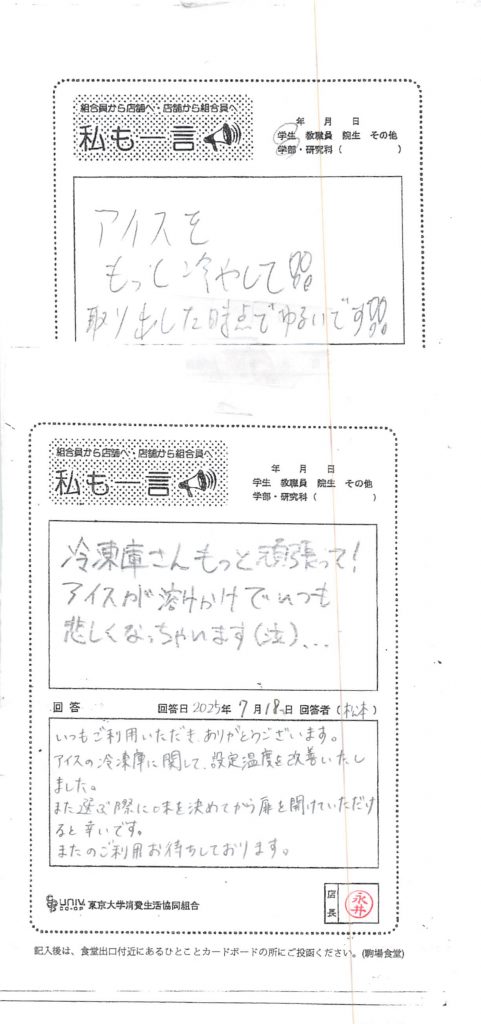 組合員から店舗へ・店舗から組合員へ
私も一言
年 月 日
学生 教職員 院生 その他
学部・研究科( )
アイスを
もっと冷やして!!
取り出した時点でゆるいです!!
組合員から店舗へ・店舗から組合員へ
私も一言
年 月 日
学生 教職員 院生 その他
学部・研究科( )
冷凍庫さんもっと頑張って!
アイスが溶けかけでいつも
悲しくなっちゃいます(泣)...
回答 回答日 2025年 7月18日 回答者(松本)
いつもご利用いただき、ありがとうございます。
アイスの冷凍庫に関して、設定温度を改善いたし
ました。
また選ぶ際に味を決めてから扉を開けていただけ
ると幸いです。
またのご利用お待ちしております。
UNIV. CO-OP 東京大学消費生活協同組合
店長 永井
記入後は、食堂出口付近にあるひとことカードボードの所にご投函ください。(駒場食堂)